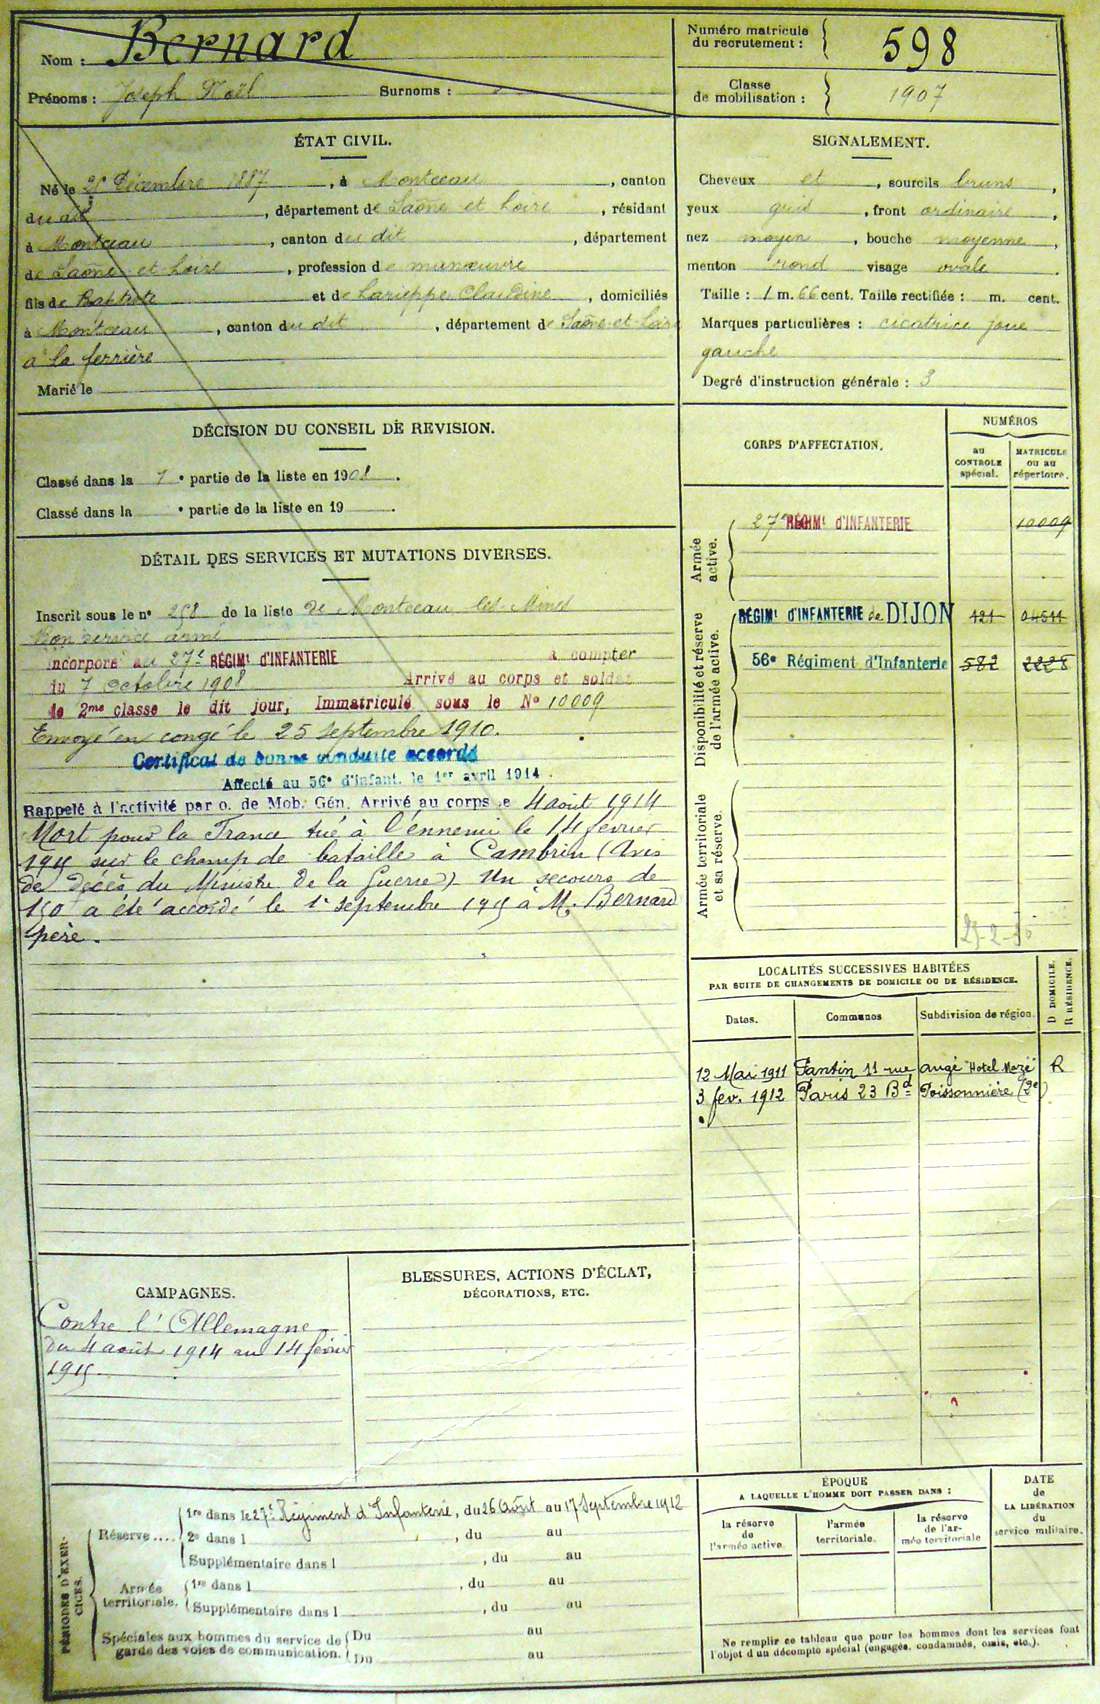 Nom : Bernard
Prénoms : Joseph Noël Surnoms :
Numéro matricule
du recrutement : 598
Classe
de mobilisation : 1907
ÉTAT CIVIL.
Né le Décembre 1887, à Montceau, canton
du dit, département de Saône et Loire, résidant
à Montceau, canton du dit, département
de Saône et Loire, profession de manœuvre
fils de Baptiste et de Larieppe Claudine, domiciliés
à Montceau, canton du dit, département de Saône et Loire
à la ferrière
Marié le
SIGNALEMENT.
Cheveux et, sourcils bruns,
yeux gris, front ordinaire,
nez moyen, bouche moyenne,
menton rond visage ovale.
Taille : 1 m. 66 cent. Taille rectifiée : m. cent.
Marques particulières : cicatrice joue
gauche
Degré d'instruction générale : 3
DÉCISION DU CONSEIL DE REVISION.
Classé dans la 1e partie de la liste en 1908.
Classé dans la e partie de la liste en 19 .
DÉTAIL DES SERVICES ET MUTATIONS DIVERSES.
Inscrit sous le no 258 de la liste de Montceau les Mines
Bon service armé
Incorporé au 27e RÉGIMt D'INFANTERIE à compter
du 7 octobre 1908 Arrivé au corps et soldat
de 2me classe le dit jour, Immatriculé sous le No 10009
Envoyé en congé le 25 septembre 1910.
Certificat de bonne conduite accordé
Affecté au 56e d'infant. le 1er avril 1914.
Rappelé à l'activité par o. de Mob. Gén. Arrivé au corps le 4 août 1914
Mort pour la France tué à l'ennemi le 14 février
1915 sur le champ de bataille à Cambrin (Avis
de décès du Ministre de la Guerre). Un secours de
150 a été accordé le 1er septembre 1915 à M. Bernard
père.
CORPS D'AFFECTATION.
NUMÉROS
au
CONTROLE
spécial.
MATRICULE
ou au
répertoire.
Armée
active.
27e RÉGIMt D'INFANTERIE 10009
Disponibilité et réserve
de l'armée active.
RÉGIMt D'INFANTERIE de DIJON 121 04511
56e Régiment d'Infanterie 582 2228
Armée territoriale
et sa réserve.
LOCALITÉS SUCCESSIVES HABITÉES
PAR SUITE DE CHANGEMENTS DE DOMICILE OU DE RÉSIDENCE.
Dates. Communes Subdivision de région.
D DOMICILE.
R RÉSIDENCE.
12 Mai 1911 Pantin 11 rue augé "Hotel Mazé" R
3 fev. 1912 Paris 23 Bd Poissonnière (2e)
CAMPAGNES.
Contre l'Allemagne
du 4 août 1914 au 14 février
1915
BLESSURES, ACTIONS D'ÉCLAT,
DÉCORATIONS, ETC.
PÉRIODES D'EXER-
CICES.
Réserve....
1re dans le 27e Régiment d'Infanterie, du 26 Août au 17 Septembre 1912
2e dans l , du au
Supplémentaire dans l , du au
Armée
territoriale.
1re dans l , du au
Supplémentaire dans l , du au
Spéciales aux hommes du service de
garde des voies de communication.
Du au
Du au
ÉPOQUE
A LAQUELLE L'HOMME DOIT PASSER DANS :
la réserve
de
l'armée active.
l'armée
territoriale.
la réserve
de l'ar-
mée territoriale
DATE
de
LA LIBÉRATION
du
service militaire.
Ne remplir ce tableau que pour les hommes dont les services font
l'objet d'un décompte spécial (engagés, condamnés, omis, etc.).